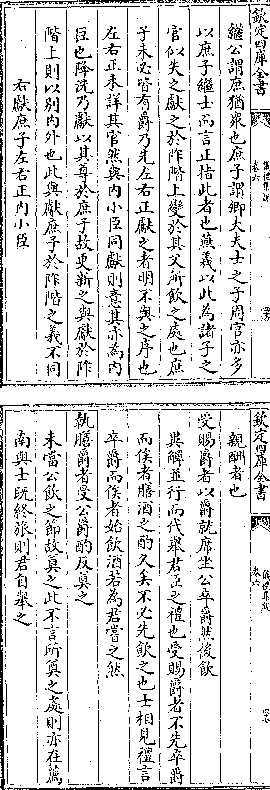 欽定四庫全書
儀禮集說
卷六
繼公謂庶猶衆也庶子謂卿大夫士之子周官亦多
以庶子繼士而言正指此者也燕義以此為諸子之
官似失之獻之於阼階上變於其父所飲之處也庶
子未必皆有爵乃先左右正獻之者明不與之序也
左右正未詳其官然與內小臣同獻則意其亦為內
臣也降洗乃獻以其尊於庶子故更新之與獻於阼
階上則以別內外也此與獻庶子於阼階之義不同
右獻庶子左右正內小臣
欽定四庫全書
儀禮集說
卷六
親酬者也
受賜爵者以爵就席坐公卒爵然後飲
異觶並行而代舉君臣之禮也受賜爵者不先卒爵
而俟者膳酒之酌久矣不必先飲之也士相見禮言
卒爵而俟者始飲酒若為君嘗之然
執膳爵者受公爵酌反奠之
未當公飲之節故奠之此不言所奠之處則亦在薦
南與士既終旅則君自舉之